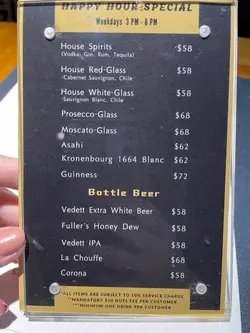 HAPPY HOUR SPECIAL
Weekdays 3 PM - 8 PM
House Spirits $58
(Vodka, Gin, Rum, Tequila)
House Red-Glass $58
-Cabernet Sauvignon, Chile
House White-Glass $58
-Sauvignon Blanc, Chile
Prosecco-Glass $68
Moscato-Glass $68
Asahi $62
Kronenbourg 1664 Blanc $62
Guinness $72
Bottle Beer
Vedett Extra White Beer $58
Fuller's Honey Dew $58
Vedett IPA $58
La Chouffe $68
Corona $58
*ALL ITEMS ARE SUBJECT TO 10% SERVICE CHARGE
**MANDATORY $10 NUTS FEE PER CUSTOMER
***MINIMUM ONE DRINK PER CUSTOMER